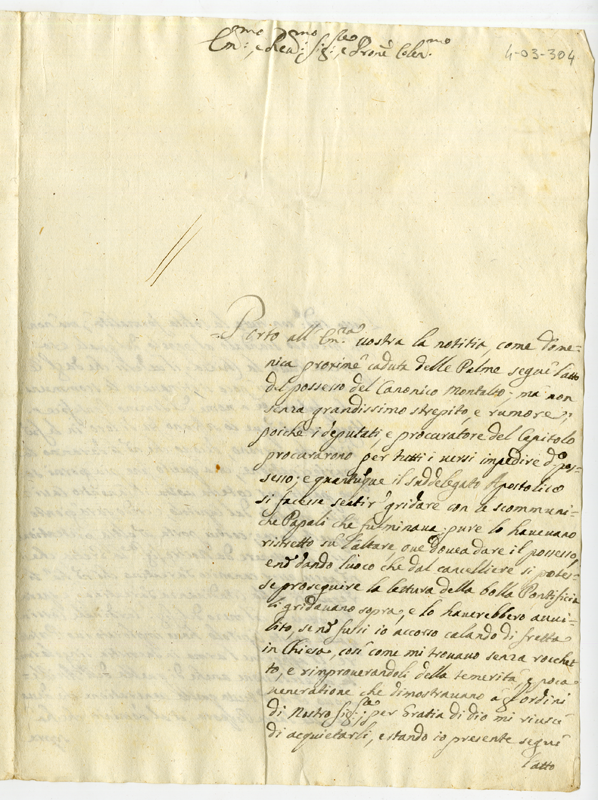 4-03-304
Em:mo, e Rev:mo Sig:r, e Prone Colen:mo
Porto all'Em:za vostra la notitia, come Dome-
nica proxime caduta delle Palme seguì l'atto
del possesso del Canonico Montalto; ma non
senza grandissimo strepito, e rumore;
poiche i deputati e procuratore del Capitolo
procurarono per tutti i versi impedire do pos-
sesso; e quantunque il suddelegato Apostolico
si facesse sentir' gridare con le scommuni-
che Papali che fulminava; pure lo havevano
ristretto su l'altare ove dovea dare il possesso,
e no dando luoco che dal cancelliere si potes-
se proseguire la lettura della bolla Pontificia
li gridavano sopra, e lo haverebbero avvi-
lito, se no fussi io accorso calando di fretta
in Chiesa, così come mi trovavo senza rocchet-
to, e rimproverandoli della temerità, e poca
veneratione che dimostravano a gl'ordini
di Nostro Sig:re per Gratia di Dio mi riuscì
di acquietarli, e stando io presente seguì
l'atto